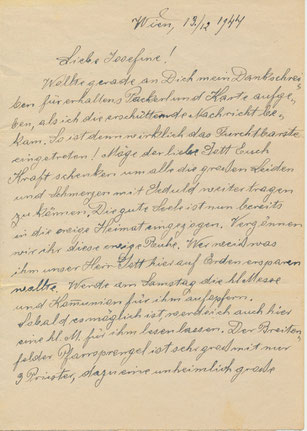 Wien, 13/12 1944
Liebe Josefine!
Wollte gerade an Dich mein Dankschrei-
ben für erhaltens Packerl und Karte aufge-
ben, als ich die erschütternde Nachricht be-
kam. So ist denn wirklich das Furchtbarste
eingetreten! Möge der liebe Gott Euch
Kraft schenken um alle die großen Leiden
und Schmerzen mit Geduld weiter tragen
zu können. Die gute Seele ist nun bereits
in die ewige Heimat eingezogen. Vergönnen
wir ihr diese ewige Ruhe. Wer weiß was
ihm unser Herr Gott hier auf Erden ersparen
wollte. Werde am Samstag die hl. Messe
und Kommunion für ihm aufopfern.
Sobald es möglich ist, werde ich auch hier
eine hl. M. für ihm lesen lassen. Der Breiten-
felder Pfarrsprengel ist sehr groß mit nur
3 Priester, dazu eine unheimlich große